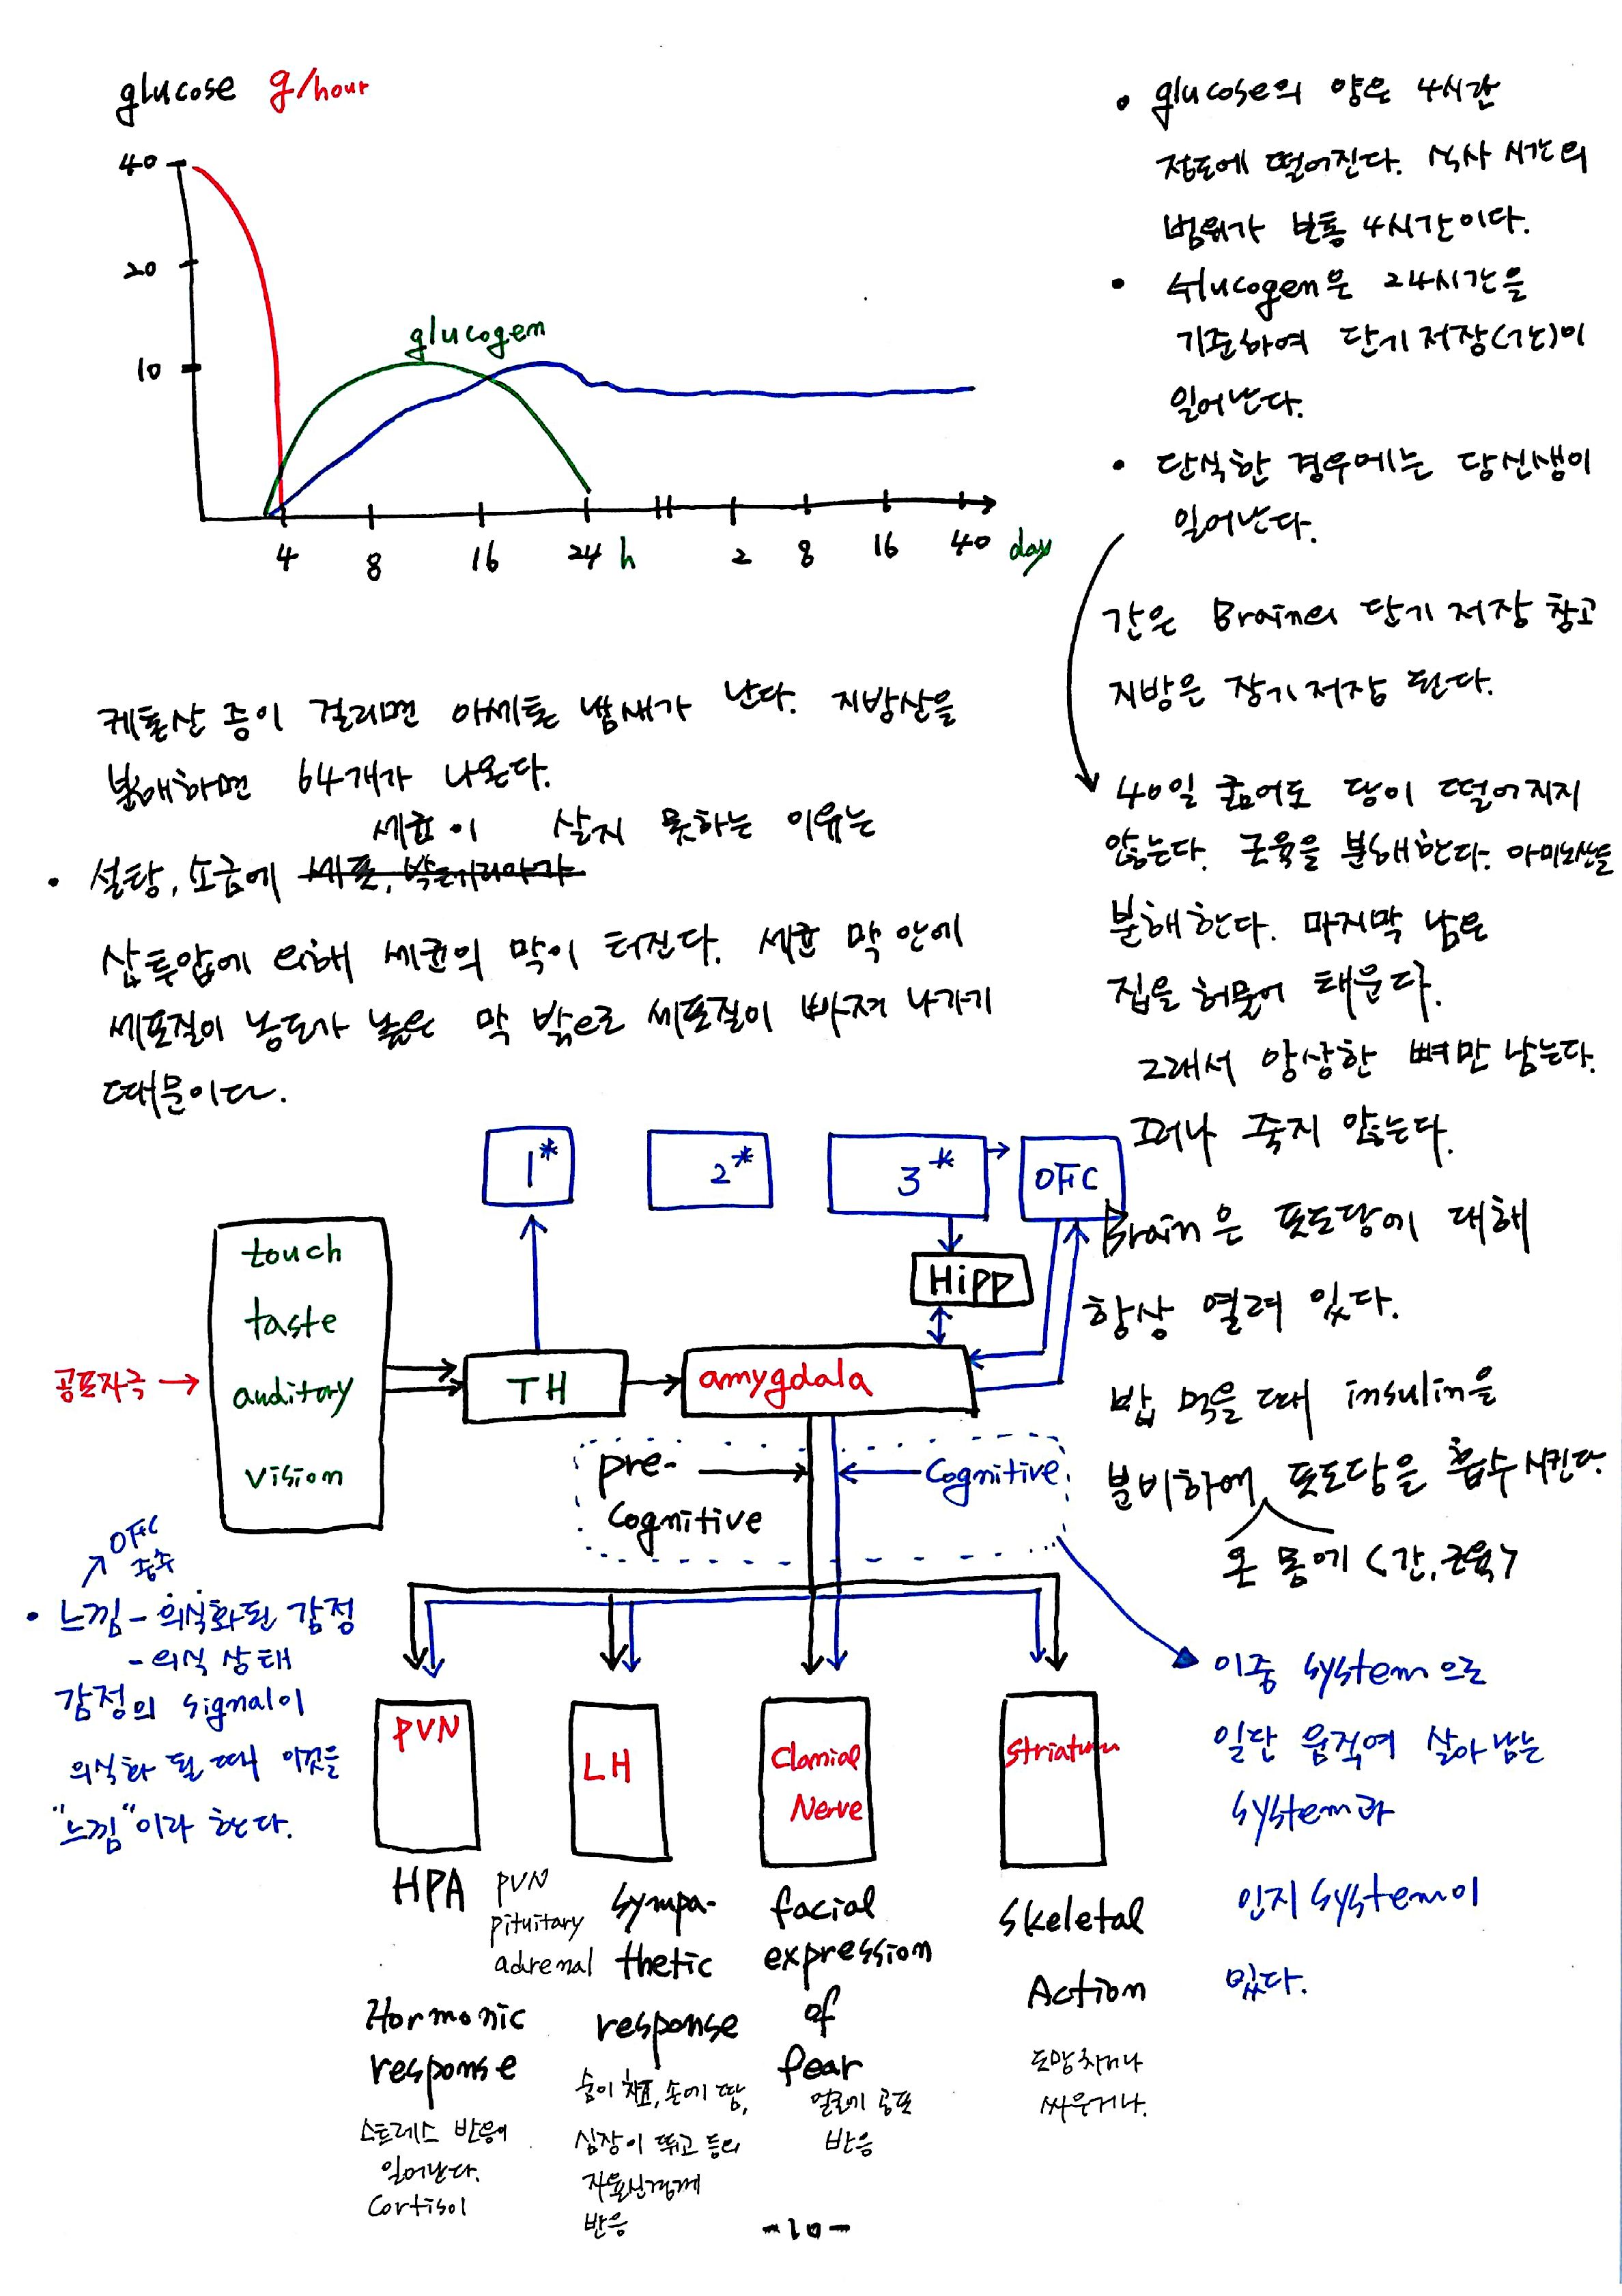 glucose g/hour
40
20
10
glucogen
4
8
16
24 h
2
8
16
40 day
• glucose의 양은 4시간
정도에 떨어진다. 식사 시간의
범위가 보통 4시간이다.
• glucogen은 24시간을
기준하여 단기저장(간)이
일어난다.
• 단식한 경우에는 당신생이
일어난다.
간은 Brain의 단기 저장 창고
지방은 장기저장 된다.
40일 굶어도 당이 떨어지지
않는다. 근육을 분해한다. 아미노산을
분해한다. 마지막 남은
집을 허물어 태운다.
그래서 앙상한 뼈만 남는다.
그러나 죽지 않는다.
Brain은 포도당에 대해
항상 열려 있다.
밥 먹을 때 insulin을
분비하여 포도당을 흡수시킨다.
온 몸에 <간, 근육>
케톤산 증이 걸리면 아세톤 냄새가 난다. 지방산을
분해하면 64개가 나온다.
세균이 살지 못하는 이유는
• 설탕, 소금에 세포, 박테리아가
삼투압에 의해 세균의 막이 터진다. 세균 막 안에
세포질이 농도가 높은 막 밖으로 세포질이 빠져 나가기
때문이다.
1*
2*
3*
OFC
Hipp
공포자극
touch
taste
auditory
vision
TH
amygdala
pre-
cognitive
cognitive
OFC
• 느낌 - 의식화된 감정
- 의식 상태
감정의 signal이
의식화 될 때 이것을
"느낌"이라 한다.
이중 system으로
일단 움직여 살아남는
system과
인지 system이
있다.
PVN
LH
Clamial
Nerve
striatum
HPA
PVN
pituitary
adrenal
Hormonic
response
스트레스 반응이
일어난다.
Cortisol
sympa-
thetic
response
숨이 차고, 손에 땀,
심장이 뛰고 등의
자율신경계
반응
facial
expression
of
fear
얼굴에 공포
반응
skeletal
Action
도망치거나
싸우거나.
-10-